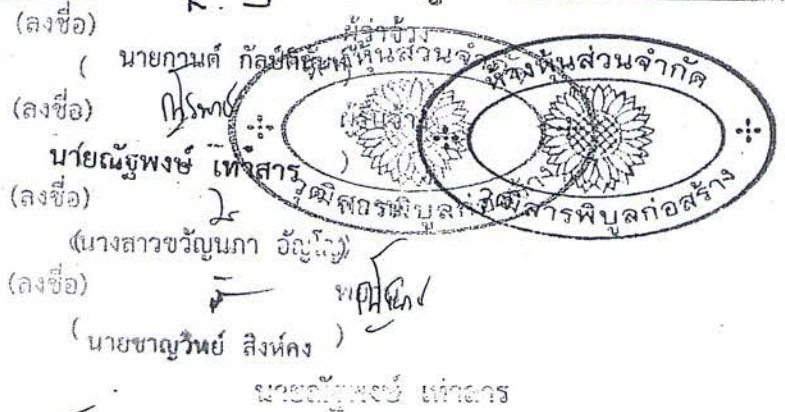 (ลงชื่อ) ผู้ว่าจ้าง
( นายกานต์
(ลงชื่อ) ผู้รับจ้าง
นายณัฐพงษ์ เทำสาร )
(ลงชื่อ)
(นางสาวขวัญนภา อัญโญ)
(ลงชื่อ)
( นายชาญวิทย์ สิงห์คง )
นายณัฐพงษ์ เทำสาร
ห้างหุ้นส่วนจำกัด
วุฒิสารพิบูลก่อสร้าง
ห้างหุ้นส่วนจำกัด
วุฒิสารพิบูลก่อสร้าง